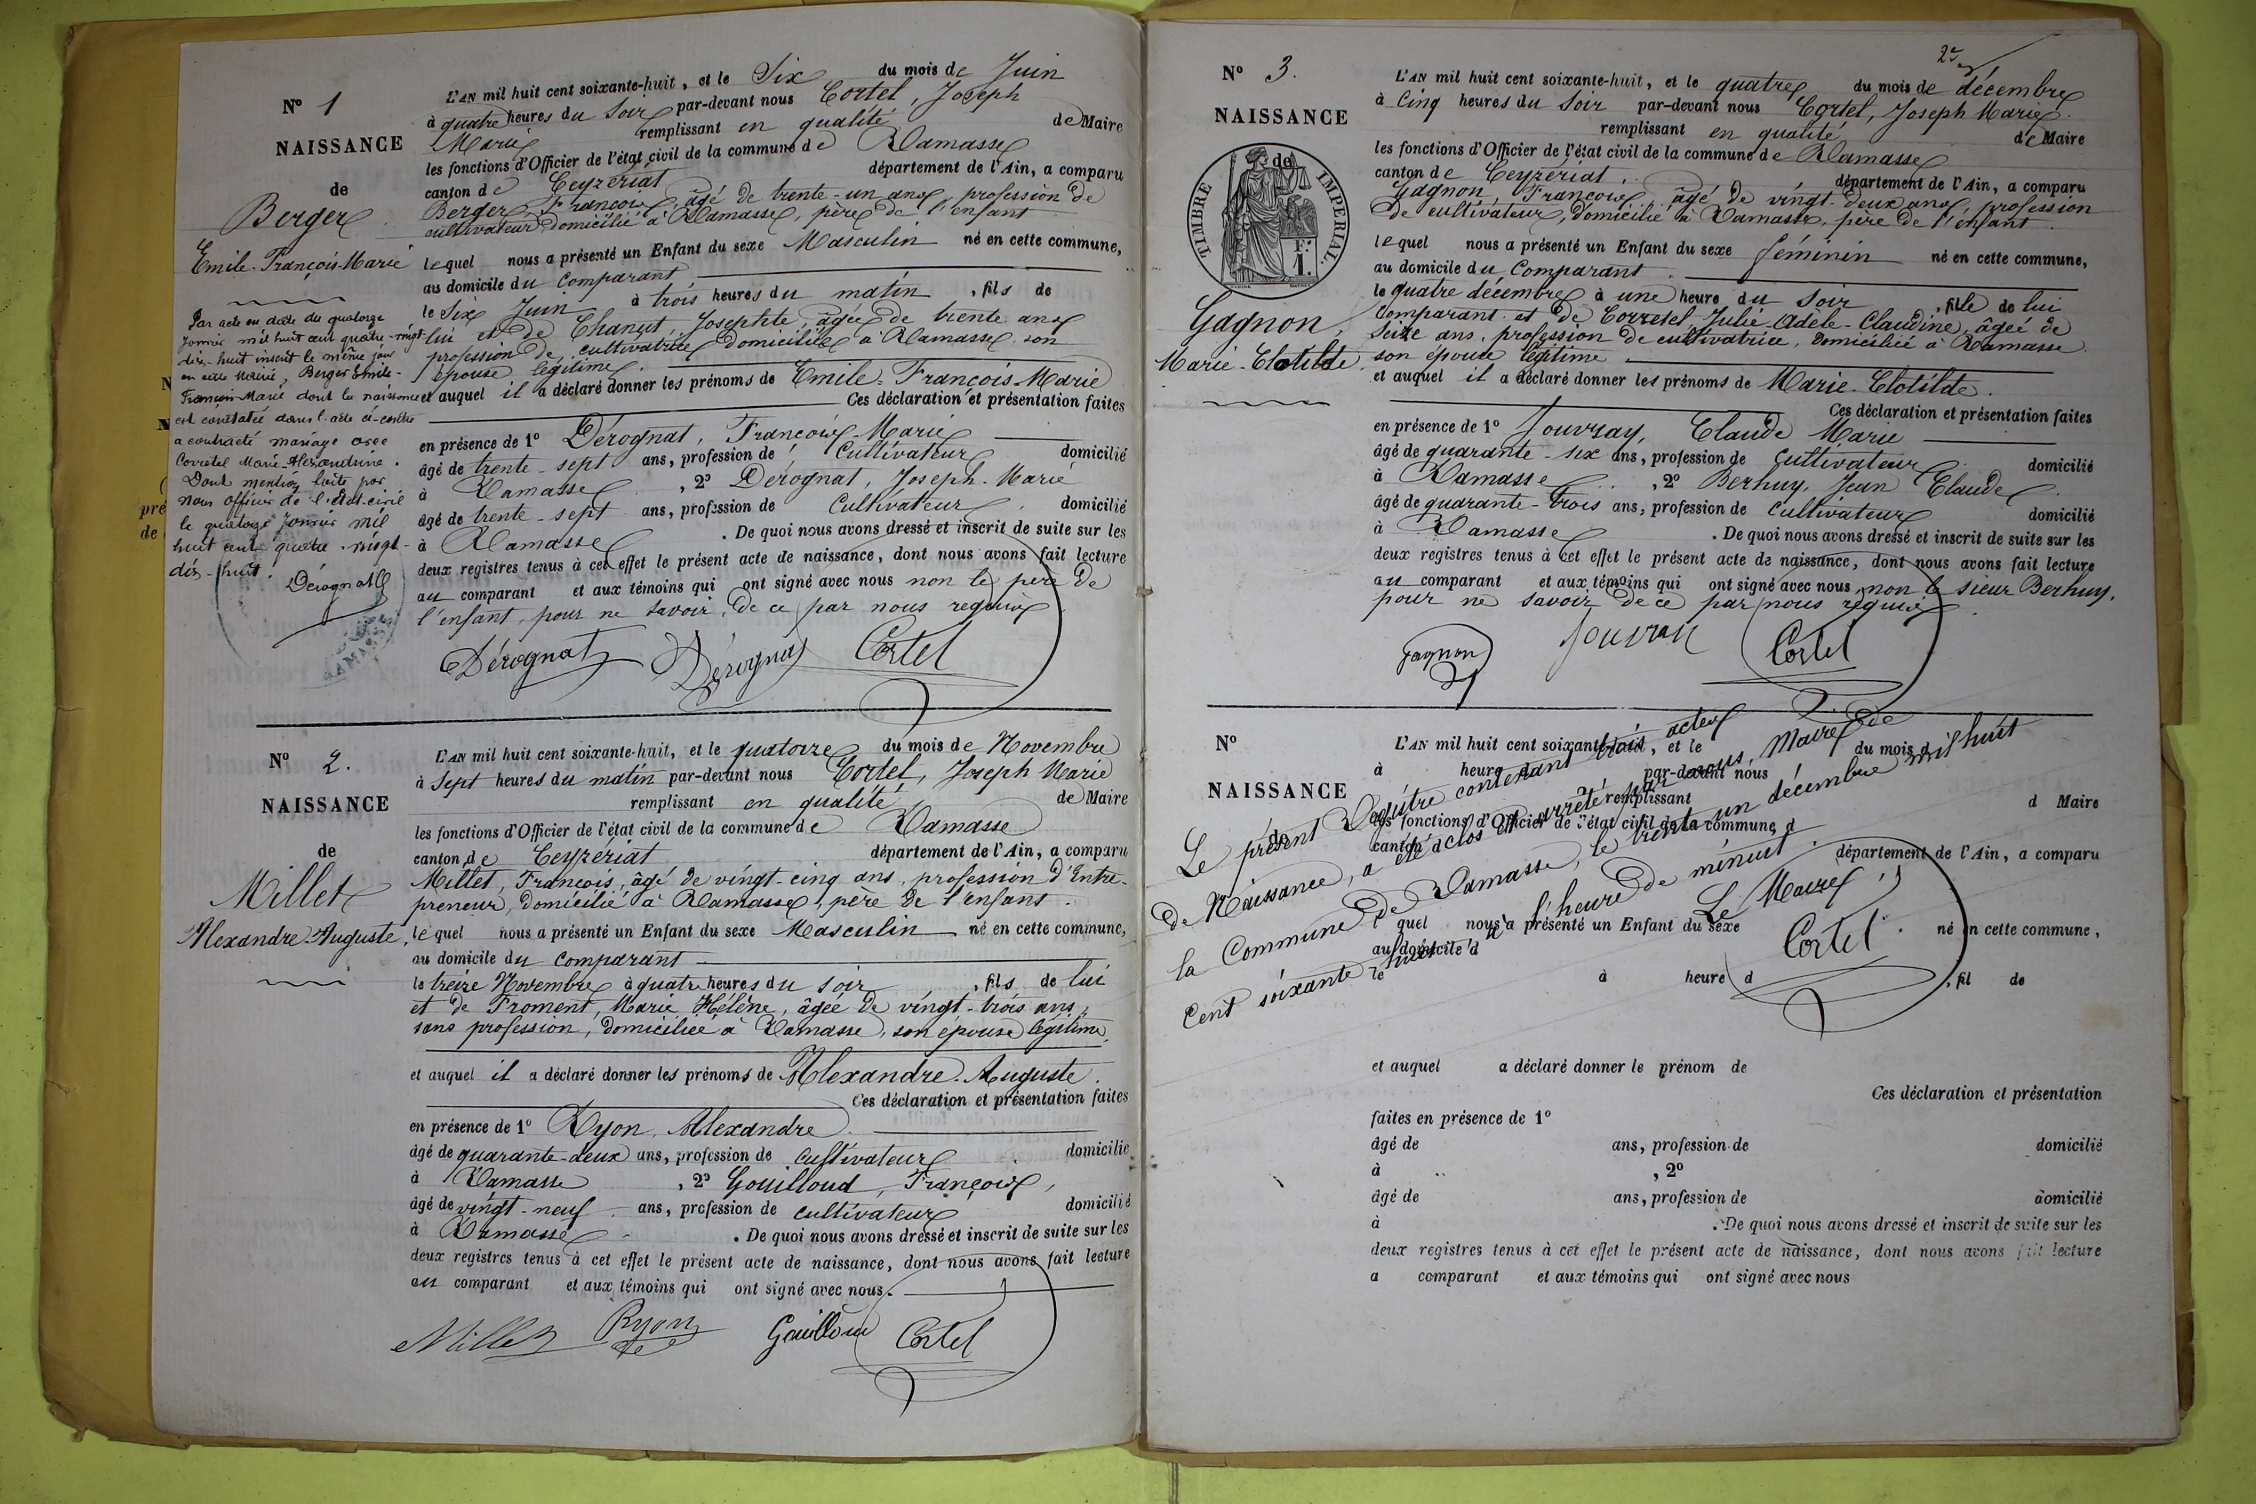 N° 1
NAISSANCE
de
Berger
Emile-François-Marie
Par acte en date du quatorze
Janvier mil huit cent quatre-vingt-
dix-huit inscrit le même jour
en cette Mairie, Berger Emile-
François-Marie dont la naissance
est constatée dans l'acte ci-contre
a contracté mariage avec
Corretel Marie-Alexandrine.
Dont mention faite par
nous officier de l'état-civil
le quatorze Janvier mil
huit cent quatre-vingt-
dix-huit.
Dérognat
L'AN mil huit cent soixante-huit, et le Six du mois de Juin
à quatre heures du Soir par-devant nous Cortel, Joseph
Marie remplissant en qualité de Maire
les fonctions d'Officier de l'état civil de la commune de Ramasse
canton de Ceyzériat département de l'Ain, a comparu
Berger, François, âgé de trente-un ans, profession de
cultivateur domicilié à Ramasse, père de l'enfant
lequel nous a présenté un Enfant du sexe Masculin né en cette commune,
au domicile du Comparant
le Six Juin à trois heures du matin, fils de
lui et de Chanut, Josephte, âgée de trente ans
profession de cultivatrice domiciliée à Ramasse son
épouse légitime.
et auquel il a déclaré donner les prénoms de Emile-François-Marie
Ces déclaration et présentation faites
en présence de 1° Dérognat, François-Marie
âgé de trente-sept ans, profession de Cultivateur domicilié
à Ramasse, 2° Dérognat, Joseph-Marie
âgé de trente-sept ans, profession de Cultivateur domicilié
à Ramasse. De quoi nous avons dressé et inscrit de suite sur les
deux registres tenus à cet effet le présent acte de naissance, dont nous avons fait lecture
au comparant et aux témoins qui ont signé avec nous non le père de
l'enfant, pour ne savoir, de ce par nous requis.
Dérognat Dérognat Cortel
N° 2.
NAISSANCE
de
Millet
Alexandre-Auguste,
L'AN mil huit cent soixante-huit, et le quatorze du mois de Novembre
à Sept heures du matin par-devant nous Cortel, Joseph Marie
remplissant en qualité de Maire
les fonctions d'Officier de l'état civil de la commune de Ramasse
canton de Ceyzériat département de l'Ain, a comparu
Millet, François, âgé de vingt-cinq ans, profession d'Entre-
preneur, domicilié à Ramasse, père de l'enfant.
lequel nous a présenté un Enfant du sexe Masculin né en cette commune,
au domicile du comparant
le treize Novembre à quatre heures du soir, fils de lui
et de Froment, Marie Hélène, âgée de vingt-trois ans,
sans profession, domiciliée à Ramasse, son épouse légitime,
et auquel il a déclaré donner les prénoms de Alexandre-Auguste.
Ces déclaration et présentation faites
en présence de 1° Ryon, Alexandre
âgé de quarante-deux ans, profession de cultivateur domicilié
à Ramasse, 2° Gouilloud, François,
âgé de vingt-neuf ans, profession de cultivateur domicilié
à Ramasse. De quoi nous avons dressé et inscrit de suite sur les
deux registres tenus à cet effet le présent acte de naissance, dont nous avons fait lecture
au comparant et aux témoins qui ont signé avec nous.
Millet Ryon Gouilloud Cortel
N° 3.
NAISSANCE
de
TIMBRE IMPERIAL.
F.
1.
Gagnon,
Marie-Clotilde.
L'AN mil huit cent soixante-huit, et le quatre du mois de décembre
à Cinq heures du Soir par-devant nous Cortel, Joseph Marie
remplissant en qualité de Maire
les fonctions d'Officier de l'état civil de la commune de Ramasse
canton de Ceyzériat. département de l'Ain, a comparu
Gagnon, François, âgé de vingt-deux ans, profession
de cultivateur, domicilié à Ramasse, père de l'enfant.
lequel nous a présenté un Enfant du sexe féminin né en cette commune,
au domicile du Comparant
le quatre décembre à une heure du Soir, fille de lui
comparant et de Corretel, Julie-Adèle-Claudine, âgée de
Seize ans, profession de cultivatrice, domiciliée à Ramasse
son épouse légitime
et auquel il a déclaré donner les prénoms de Marie-Clotilde.
Ces déclaration et présentation faites
en présence de 1° Jouvray, Claude Marie
âgé de quarante-six ans, profession de cultivateur domicilié
à Ramasse, 2° Berhuy, Jean Claude
âgé de quarante-trois ans, profession de cultivateur domicilié
à Ramasse. De quoi nous avons dressé et inscrit de suite sur les
deux registres tenus à cet effet le présent acte de naissance, dont nous avons fait lecture
au comparant et aux témoins qui ont signé avec nous, non le sieur Berhuy,
pour ne savoir de ce par nous requis.
gagnon Jouvray Cortel
N°
NAISSANCE
de
L'AN mil huit cent soixante-huit, et le du mois d
à heure d par-devant nous
remplissant d Maire
les fonctions d'Officier de l'état civil de la commune d
canton d département de l'Ain, a comparu
l quel nous a présenté un Enfant du sexe né en cette commune,
au domicile d
le à heure d , fil de
Le présent Registre contenant trois actes
de Naissance, a été clos et arrêté par nous, Maire de
la Commune de Ramasse, le trente un décembre mil huit
Cent soixante huit à l'heure de minuit.
Le Maire,
Cortel
et auquel a déclaré donner le prénom de
Ces déclaration et présentation
faites en présence de 1°
âgé de ans, profession de domicilié
à , 2°
âgé de ans, profession de domicilié
à . De quoi nous avons dressé et inscrit de suite sur les
deux registres tenus à cet effet le présent acte de naissance, dont nous avons fait lecture
a comparant et aux témoins qui ont signé avec nous